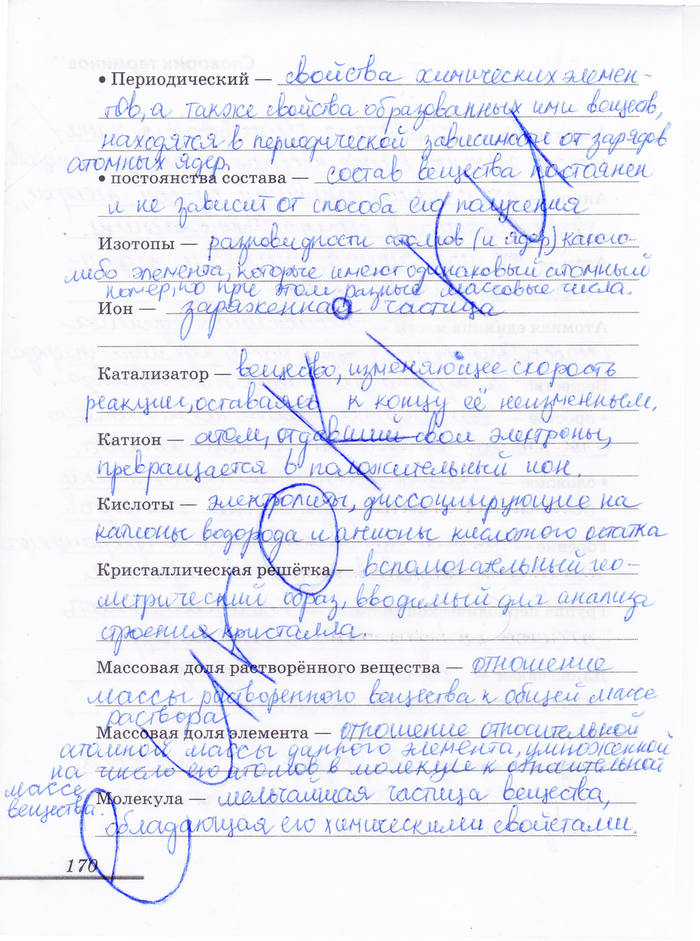 • Периодический — свойства химических элемен-
тов, а также свойства образованных ими веществ,
находятся в периодической зависимости от зарядов
атомных ядер.
• постоянства состава — состав вещества постоянен
и не зависит от способа его получения
Изотопы — разновидности атомов (и ядер) какого-
либо элемента, которые имеют одинаковый атомный
номер, но при этом разные массовые числа.
Ион — заряженная частица
Катализатор — вещество, изменяющее скорость
реакции, оставаясь к концу её неизменным.
Катион — атом, отдавший свои электроны,
превращается в положительный ион.
Кислоты — электролиты, диссоциирующие на
катионы водорода и анионы кислотного остатка
Кристаллическая решётка — вспомогательный гео-
метрический образ, вводимый для анализа
строения кристалла.
Массовая доля растворённого вещества — отношение
массы растворенного вещества к общей массе
раствора
Массовая доля элемента — отношение относительной
атомной массы данного элемента, умноженной
на число его атомов в молекуле к относительной
массе
вещества.
Молекула — мельчайшая частица вещества,
обладающая его химическими свойствами.
170